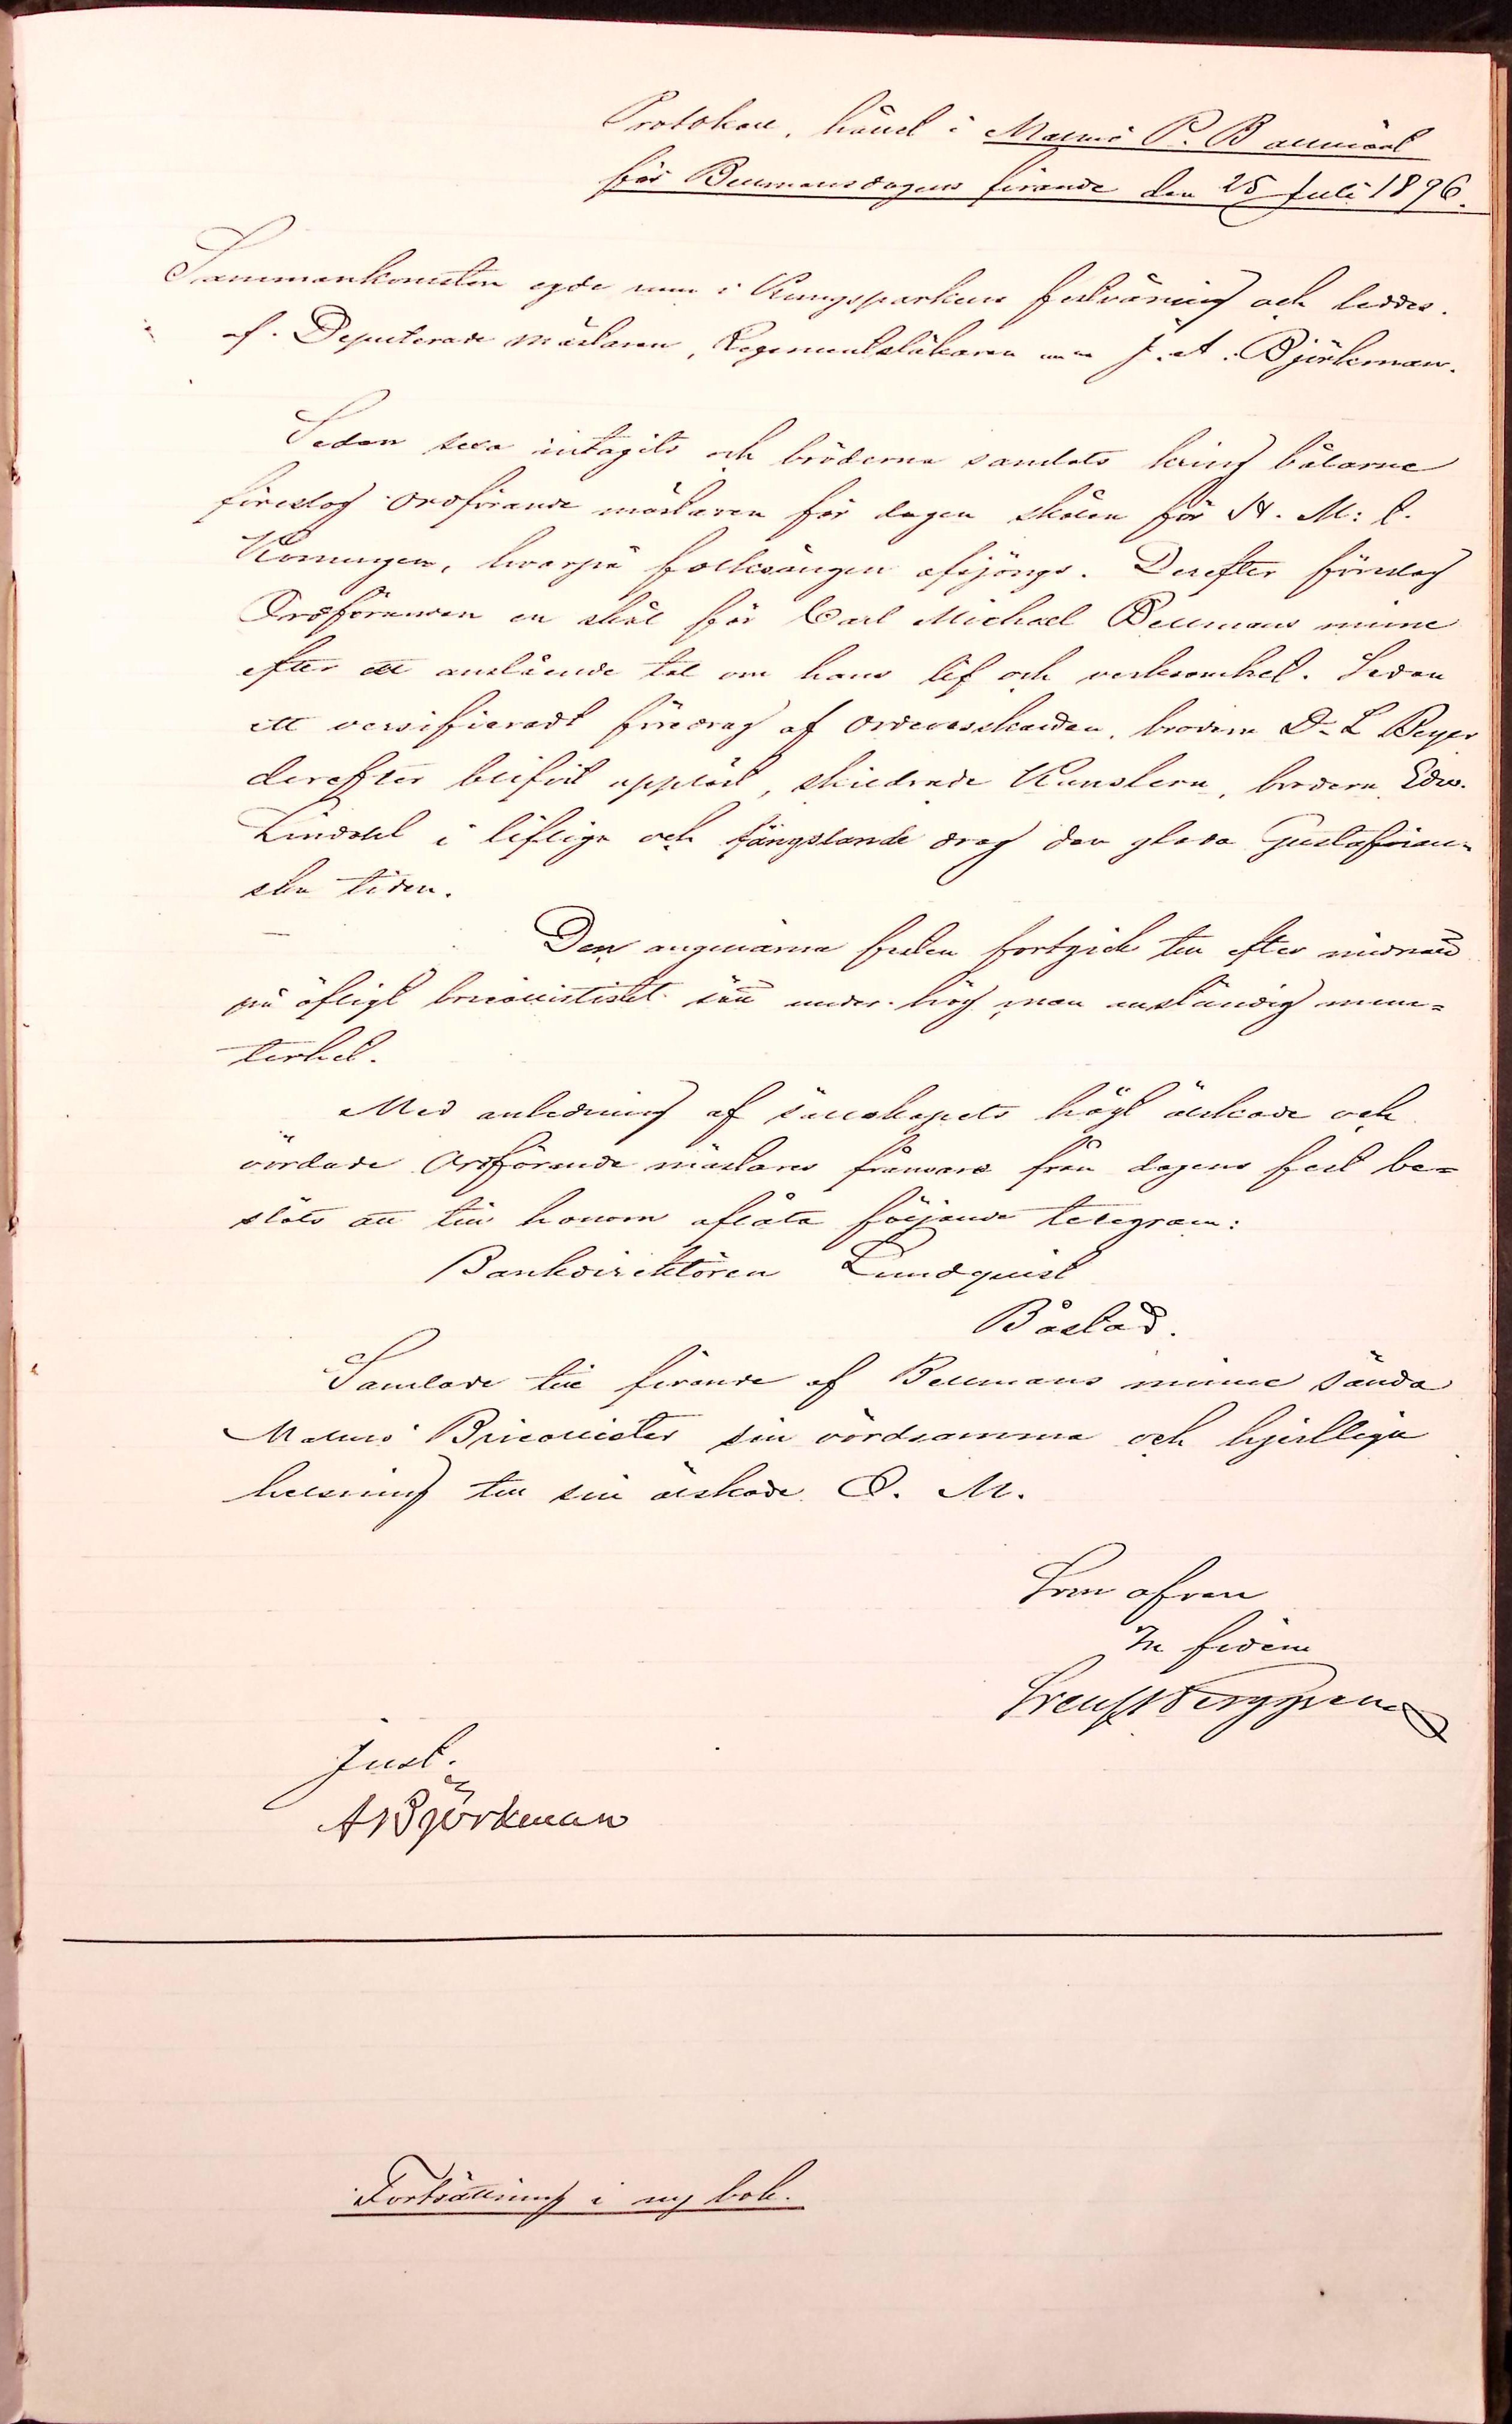 Protokoll, hållet i Malmö P. B allmänt
för Bellmansdagens firande den 25 Juli 1896.
Sammankomsten egde rum i Kungsparkens festvåning och leddes
af Deputerade mästaren, Regementsläkaren m m J. A. Björkman.
Sedan sexa intagits och bröderna samlats kring bålarne
föreslog Ordförande mästaren för dagen skålen för H. M: t.
Konungen, hvarpå folksången afsjöngs. Derefter föreslog
Ordföranden en skål för Carl Michael Bellmans minne
efter ett anslående tal om hans lif och verksamhet. Sedan
ett versifieradt föredrag af Ordensskalden, brodern D-r L Beyer
derefter blifvit uppläst, skildrade Kanslern, brodern Edw.
Lindahl i lifliga och fängslande drag den glada Gustafvian-
ska tiden.
Den angenäma festen fortgick till efter midnatt
på öfligt bricollistiskt sätt under hög men anständig mun-
terhet.
Med anledning af sällskapets högt älskade och
vördade Ordförande mästares frånvaro från dagens fest be-
slöts att till honom aflåta följande telegram:
Bankdirektören Lundquist
Båstad.
Samlade till firande af Bellmans minne sända
Malmö Bricollister sin vördsamma och hjertliga
helsning till sin älskade O. M.
Som ofvan
In fidem
Berggren
Just.
A Björkman
Fortsättning i ny bok.